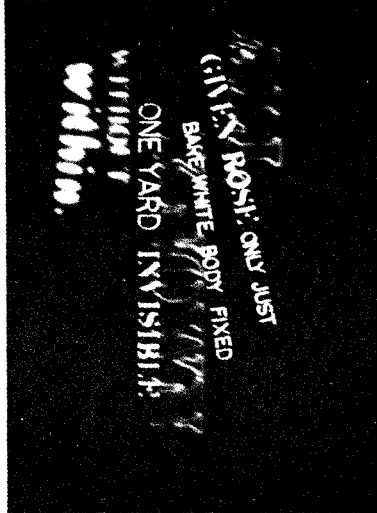 GIVEN ROSE ONLY JUST
BARE WHITE BODY FIXED
ONE YARD INVISIBLE
within.